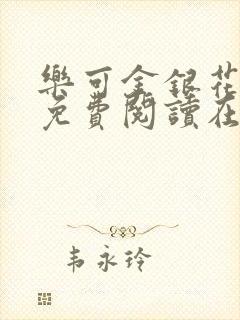 樂可金銀花
免費閱讀在
韦永玲